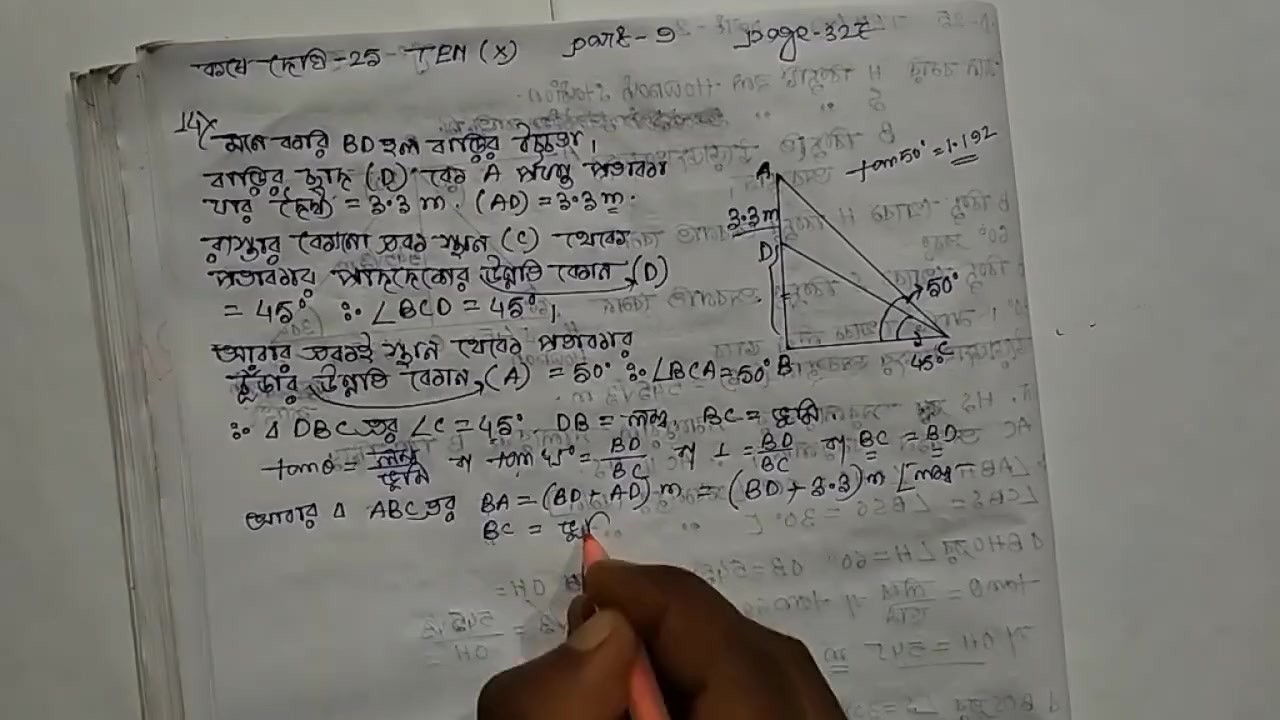 কষে দেখি-25 TEN (X) part-9 page-327
14)
মনে করি BD হল বাড়ির উচ্চতা।
বাড়ির ছাদ (D) থেকে A পর্যন্ত পতাকা
যার দৈর্ঘ্য = 3.3 m. (AD) = 3.3 m.
রাস্তার কোনো এক স্থান (C) থেকে
পতাকার পাদদেশের উন্নতি কোন (D)
= 45° ∴ ∠BCD = 45°।
আবার একই স্থান থেকে পতাকার
চূঁড়ার উন্নতি কোন (A) = 50° ∴ ∠BCA = 50°
∴ Δ DBC এর ∠C = 45° DB = লম্ব, BC = ভূমি
tanθ = লম্ব/ভূমি বা tan 45° = BD/BC বা 1 = BD/BC বা BC = BD
আবার Δ ABC এর BA = (BD + AD) m = (BD + 3.3) m [লম্ব]
BC = ভূমি
tan 50° = 1.192
A
3.3 m
D
50°
B
45°
C